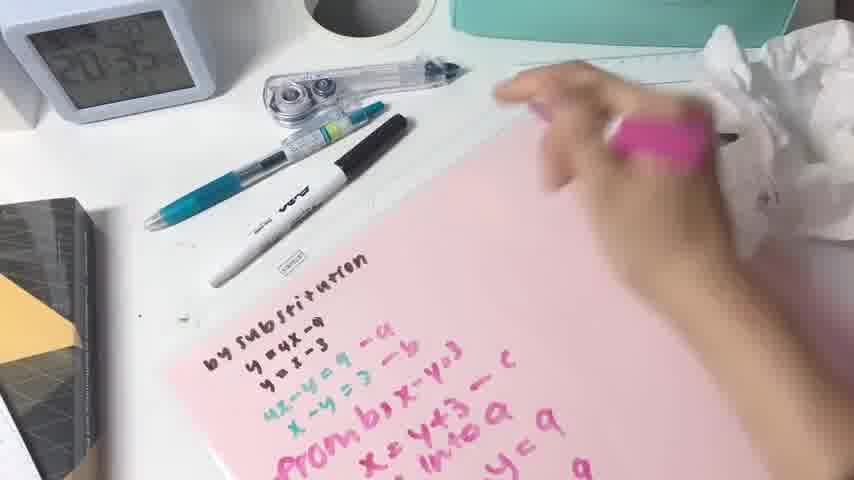 20:35
by substitution
y = 4x - 9
y = x - 3
4x - y = 9 - a
x - y = 3 - b
from b, x - y = 3
x = y + 3 - c
into a
y = 9
9